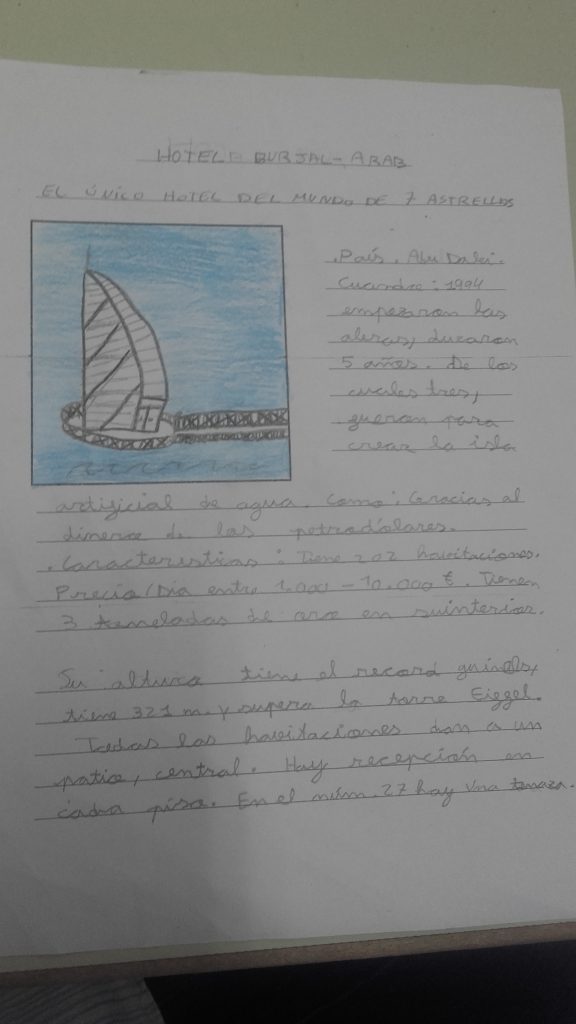 HOTEL BURJAL-ARAB
EL ÚNICO HOTEL DEL MUNDO DE 7 ASTRELLOS
.País. Abu Dabi.
Cuando: 1994
empezaron las
obras, duraron
5 años. De los
cuales tres,
fueron para
crear la isla
artificial de agua. Como: Gracias al
dinero de los petrodólares.
.Características: Tiene 202 habitaciones.
Precio/Dia entre 1.000 - 10.000 €. Tienen
3 toneladas de oro en suinterior.
Su altura tiene el record guinols,
tiene 321 m. y supera la torre Eiffel.
Todas las habitaciones dan a un
patio, central. Hay recepción en
cada piso. En el núm. 27 hay una